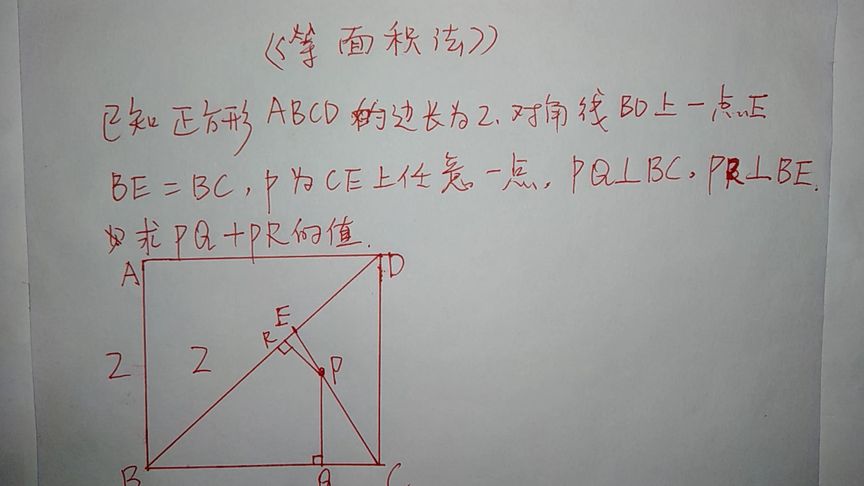 《等面积法》
已知正方形ABCD的边长为2,对角线BD上一点E
BE=BC,P为CE上任意一点,PQ⊥BC,PR⊥BE.
求PQ+PR的值.
A D
E
R
2 2 P
B Q C